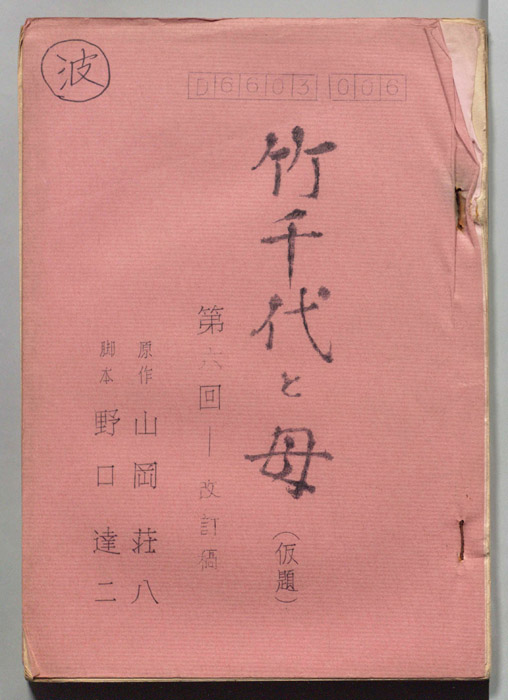 波
D6603 006
竹千代と母
(仮題)
第六回―改訂稿
原作 山岡荘八
脚本 野口達二